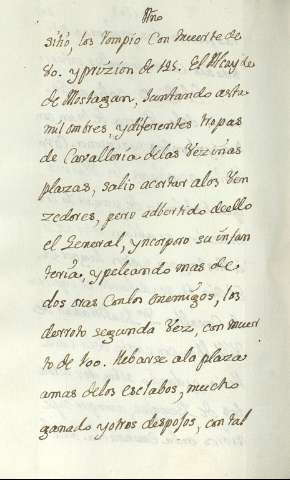 sitió, los rompio con muerte de
80. y prizion de 125. El Alcayde
de Mostagan, Juntando asta
mil ombres, y diferentes tropas
de Cavalleria de las Vezinas
plazas, salio acortar alos Ven
zedores, pero adbertido de ello
el General, yncorporo su infan
teria, y peleando mas de
dos oras con los enemigos, los
derroto segunda Vez, con muer
to de 100. llebarse ala plaza
amas delos esclabos, mucho
ganado y otros despojos, con tal